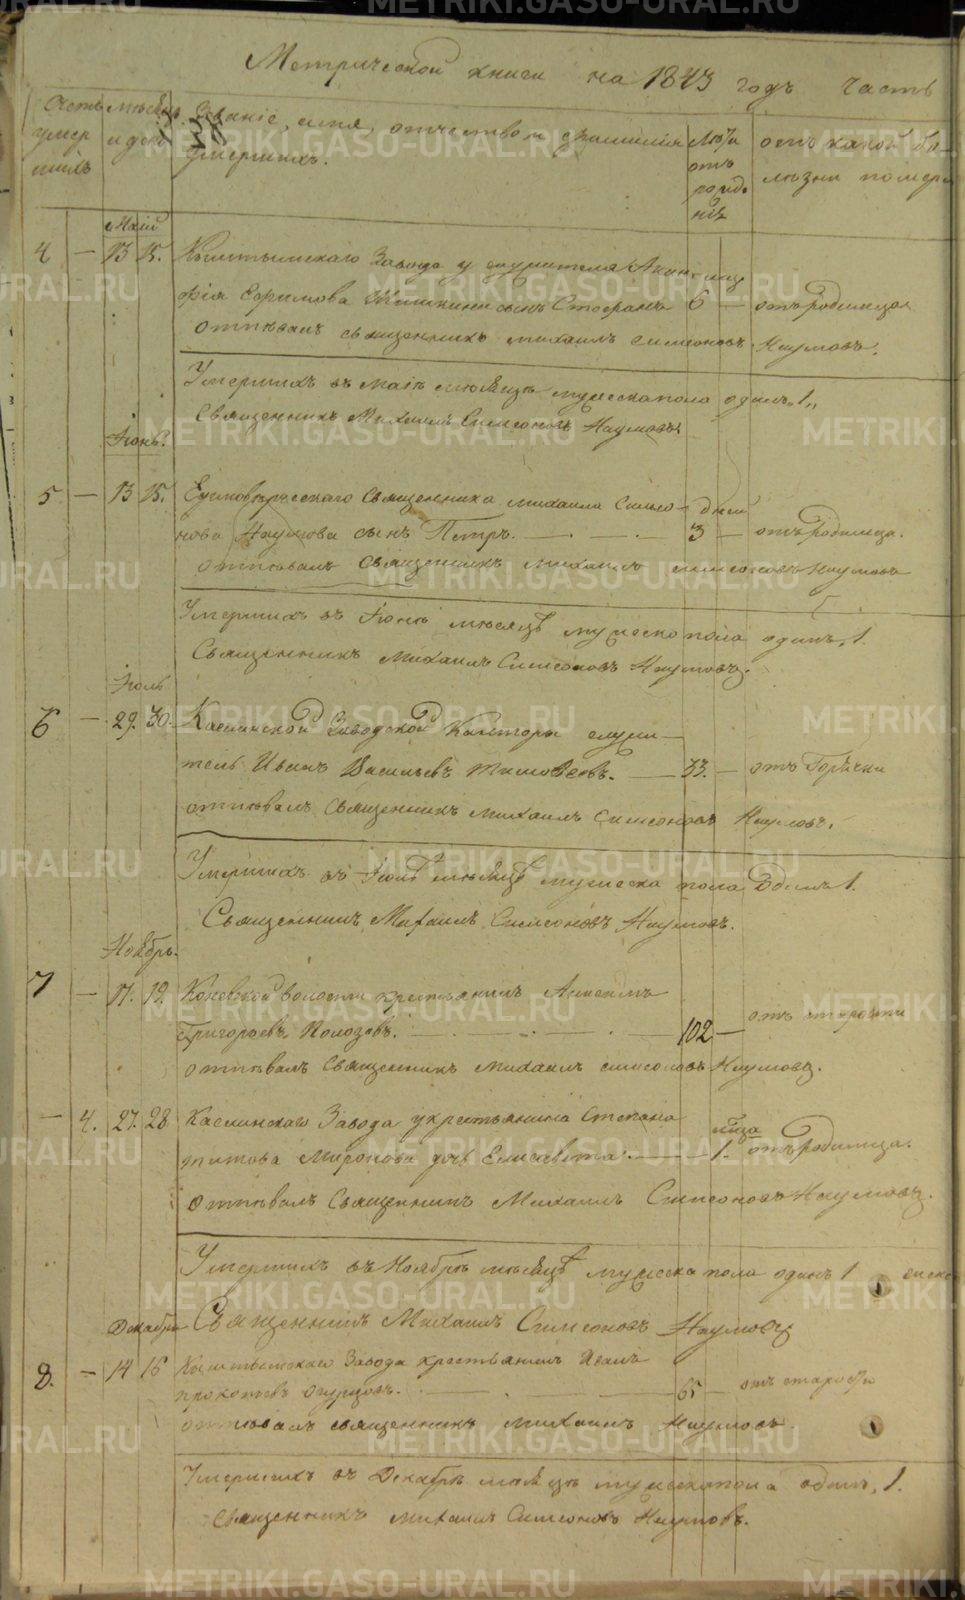 Метрической книги на 1843 годъ часть
Счетъ умершихъ
Месяцъ и день
Званіе, имя, отчество и фамилія умершихъ.
Лѣта отъ рожденія
отъ какой болѣзни померъ
Маій
4 — 13 15. Кыштымскаго Завода у служителя
Ефимова сынъ 6 — отъ родимца
отпѣвалъ священникъ Михаилъ Симеоновъ Наумовъ.
Умершихъ въ Маіѣ месяцѣ мужеска пола одинъ „1„
Священникъ Михаилъ Симеоновъ Наумовъ.
Іюнь.
5 — 13 15. Единовѣрческаго Священника Михаила Симео- дней
нова Наумова сынъ Петръ. — 3 — отъ родимца.
отпѣвалъ Священникъ Михаилъ Симеоновъ Наумовъ
Умершихъ въ Іюнѣ месяцѣ мужеска пола одинъ, 1.
Священникъ Михаилъ Симеоновъ Наумовъ.
Іюль
6 — 29. 30. Каслинской Заводской Канторы служи-
тель Иванъ Васильевъ — 33. — отъ Горячки
отпѣвалъ священникъ Михаилъ Симеоновъ Наумовъ.
Умершихъ въ Іюлѣ месяцѣ мужеска пола Одинъ 1.
Священникъ Михаилъ Симеоновъ Наумовъ.
Ноябрь.
7 — 17. 19. Коневской волости крестьянинъ
Григорьевъ Полозовъ. — 102 — отъ старости
отпѣвалъ Священникъ Михаилъ Симеоновъ Наумовъ.
— 4. 27. 28 Каслинскаго Завода у крестьянина Степана мца
Титова Миронова дочь Елисавета. — 1. отъ родимца.
отпѣвалъ Священникъ Михаилъ Симеоновъ Наумовъ.
Умершихъ въ Ноябрѣ месяцѣ мужеска пола одинъ 1
Священникъ Михаилъ Симеоновъ Наумовъ
Декабрь
8. — 14 16 Кыштымскаго Завода крестьянинъ Иванъ
Прокопьевъ — 65 — отъ старости
отпѣвалъ священникъ Михаилъ Наумовъ.
Умершихъ въ Декабрѣ месяцѣ мужеска пола одинъ, 1.
Священникъ Михаилъ Симеоновъ Наумовъ.
METRIKI.GASO-URAL.RU